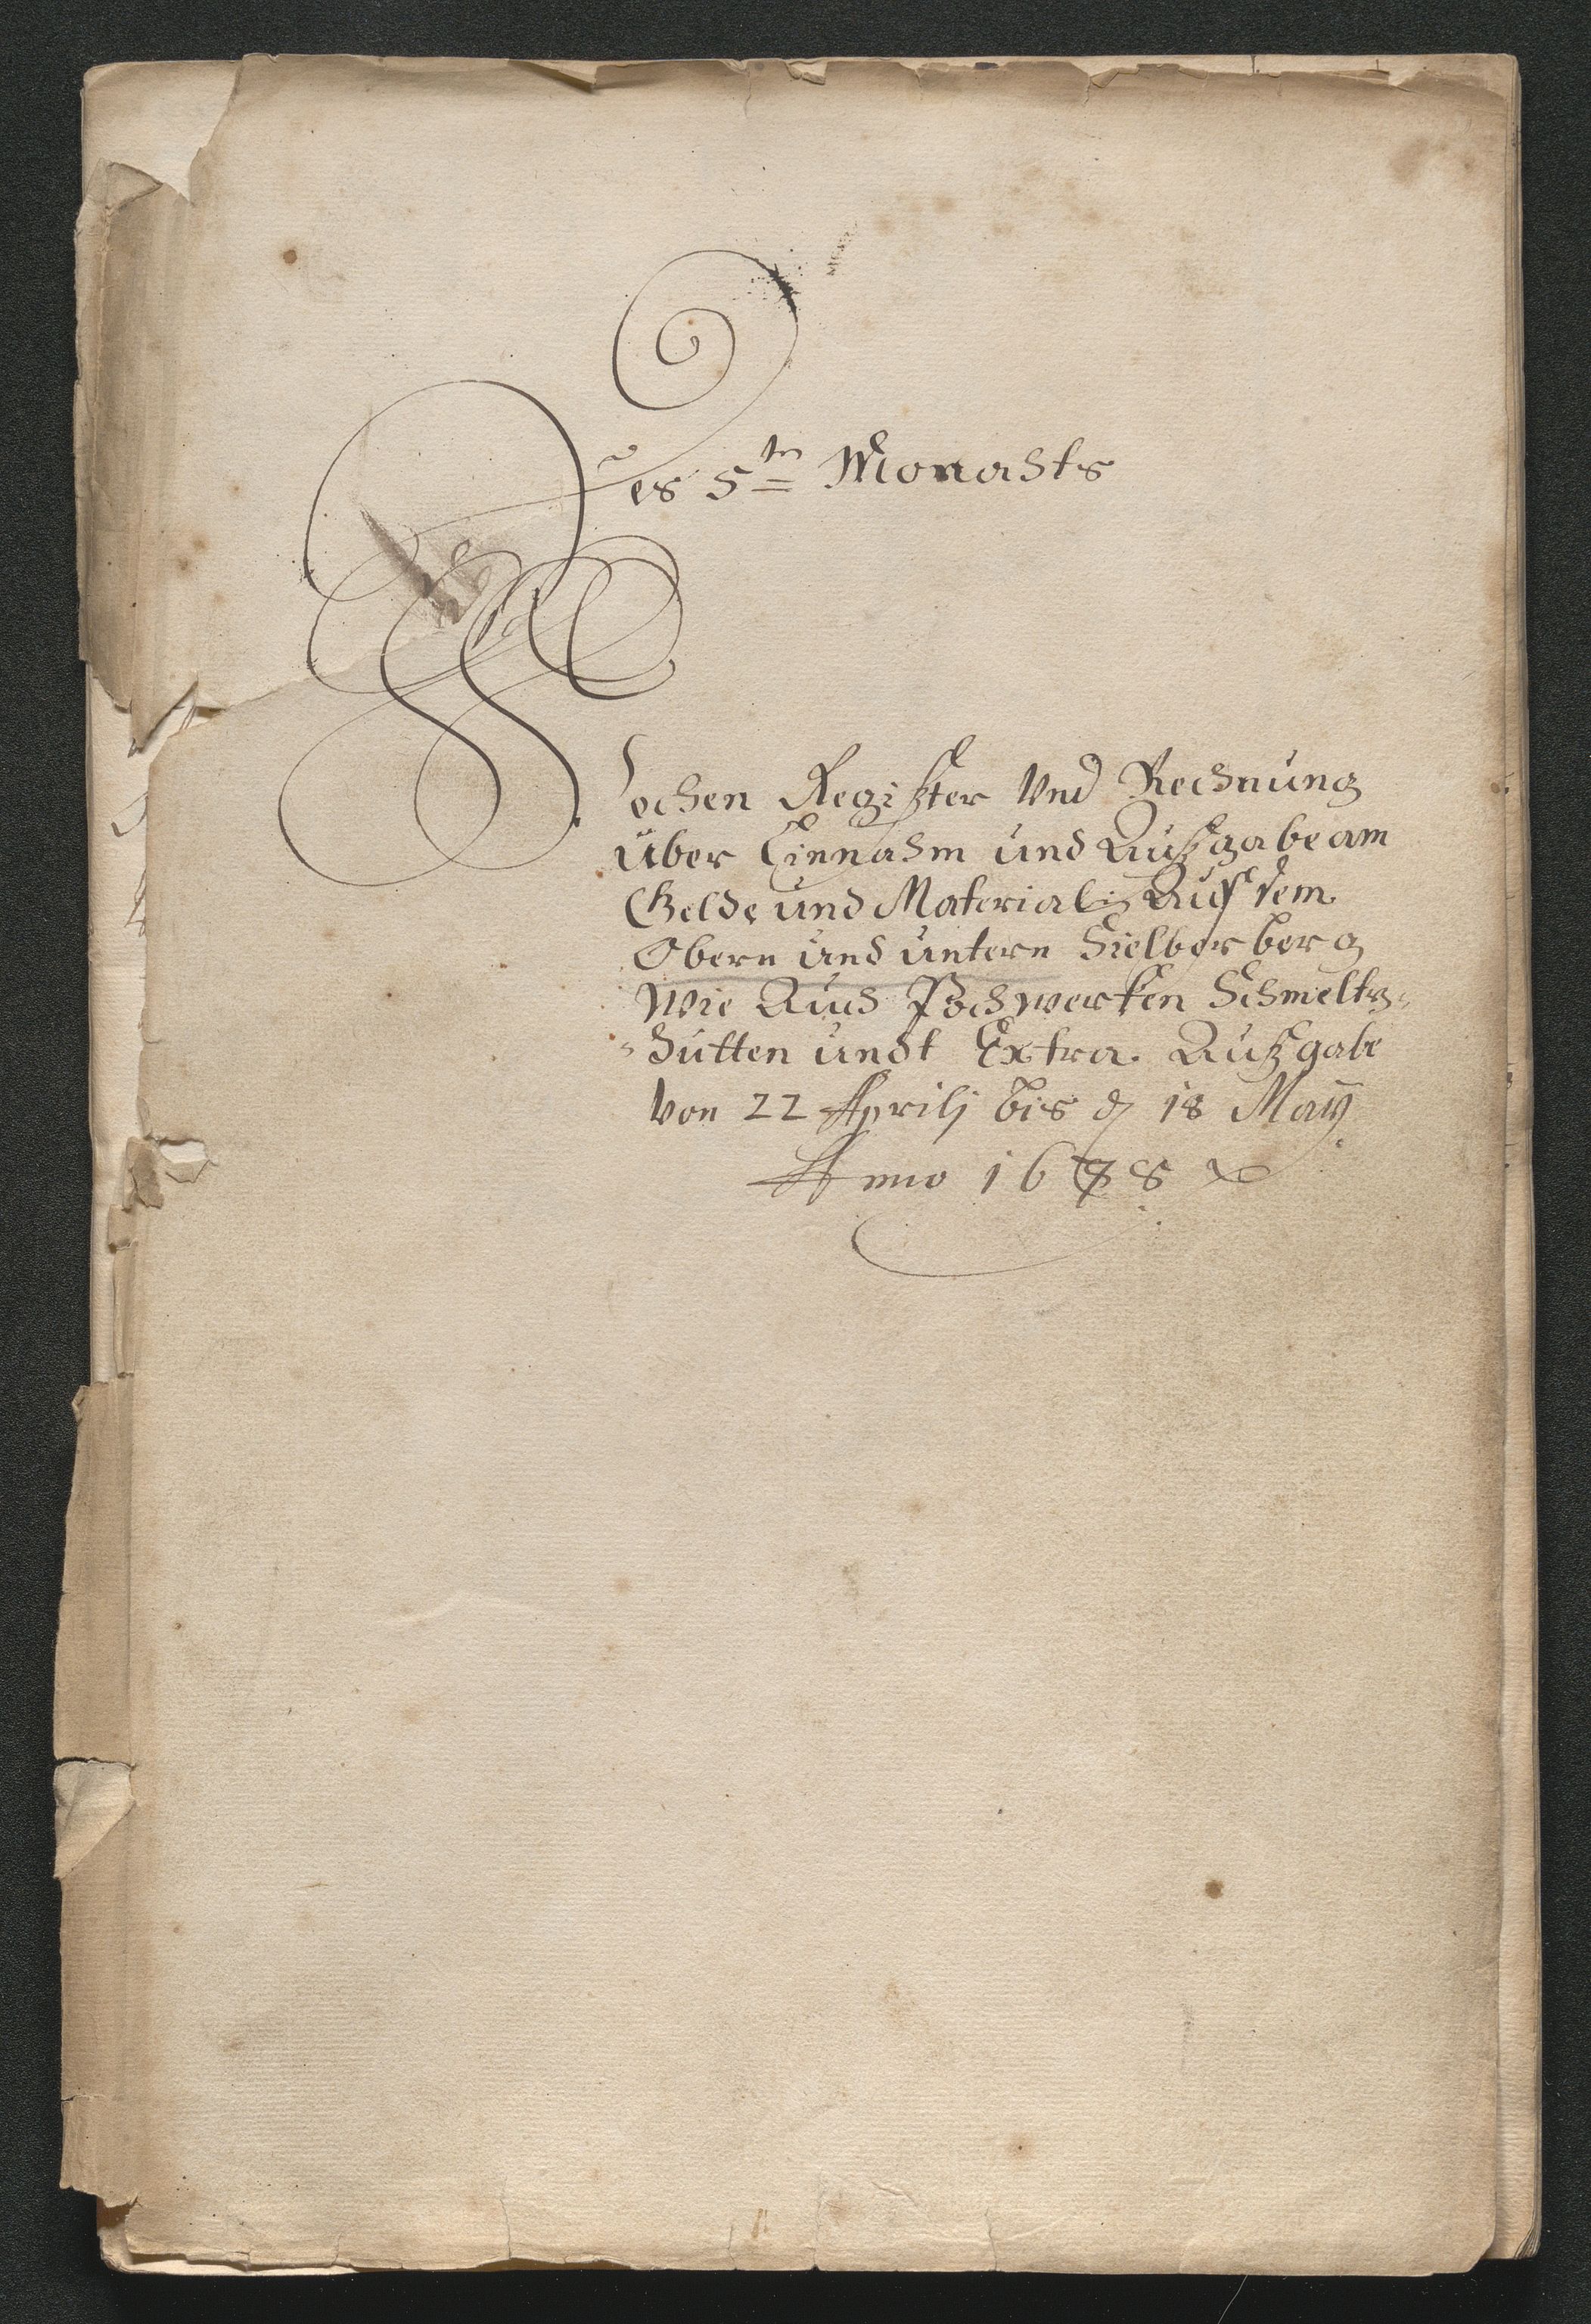 Des 5ten Monahts
Wochen Register Vnd Rechnung
über Einnahm und Außgabe am
Gelde und Materialis Auf dem
Obern und untern Sielberberg
Wie Auch Pochwerken Schmeltz-
-hütten undt Extra. Außgabe
Von 22 Aprilj bis d 18 Maÿ
Anno 1678